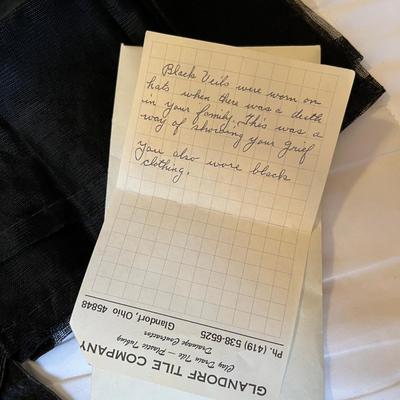 Black Veils were worn on
hats when there was a death
in your family. This was a
way of showing your grief
You also wore black
clothing.
GLANDORF TILE COMPANY
Clay Drain Tile — Plastic Tubing
Drainage Contractor
Ph. (419) 538-6525
Glandorf, Ohio 45848